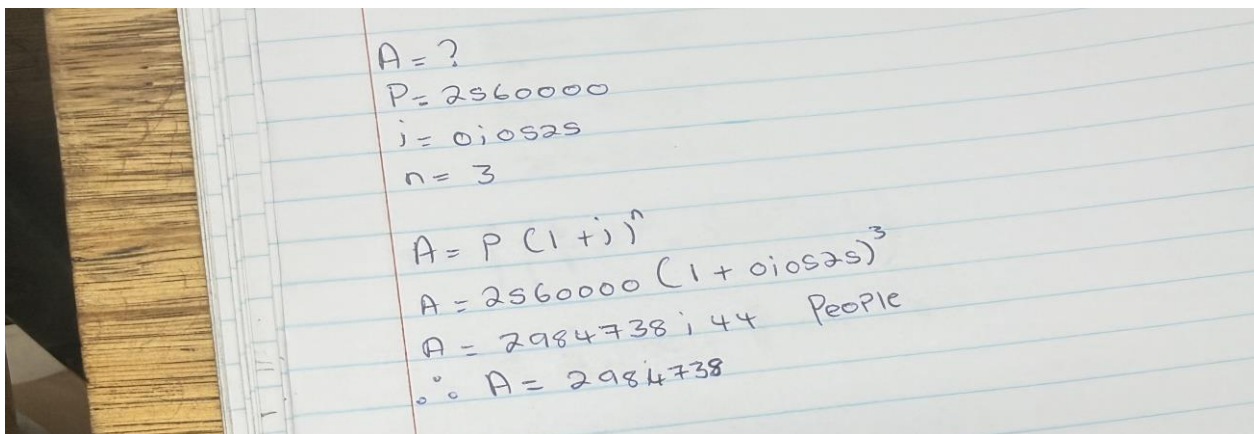 A = ?
P = 2560000
i = 0;0525
n = 3
A = P (1 + i)ⁿ
A = 2560000 (1 + 0;0525)³
A = 2984738 ; 44 People
∴ A = 2984738